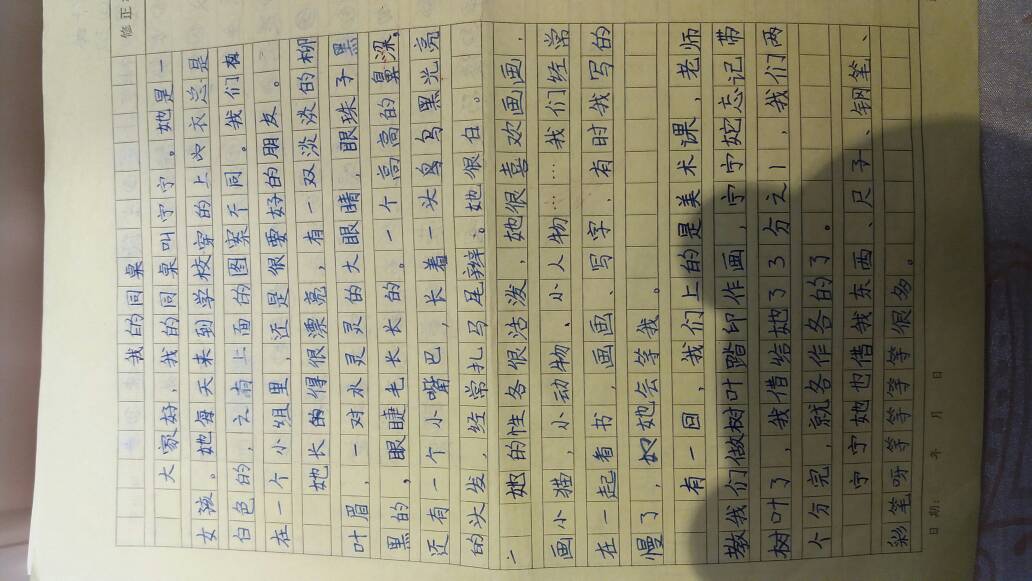 修正
我的同桌
大家好，我的同桌叫宁宁。她是一
女孩。她每天来到学校穿的上衣总是
白色的，之前上面的图案不同。我们
在一个小组里，还是很要好的朋友。
她长的得很漂亮，有一双淡淡的柳
叶眉，一对水灵灵的大眼睛，眼珠子黑
黑的，眼睫毛长长的。一个高高的鼻梁，
还有一个小嘴巴，长着一头乌乌黑光亮
的头发，经常扎马尾辫。她很白。
她的性各很活泼，她很喜欢画画，
画小猫，小动物、小人物……我们经常
在一起看书，画画、写字，有时我写的
慢了，她会等我。
有一回，我们上的是美术课，老师
教我们做树叶踏印作画，宁宁她忘记带
树叶了，我借给她了3分之1，我们两
个分完，就各作各的了。
宁宁她也借我东西、尺子、钢笔、
彩笔呀等等等等等很多。
日期： 年 月 日